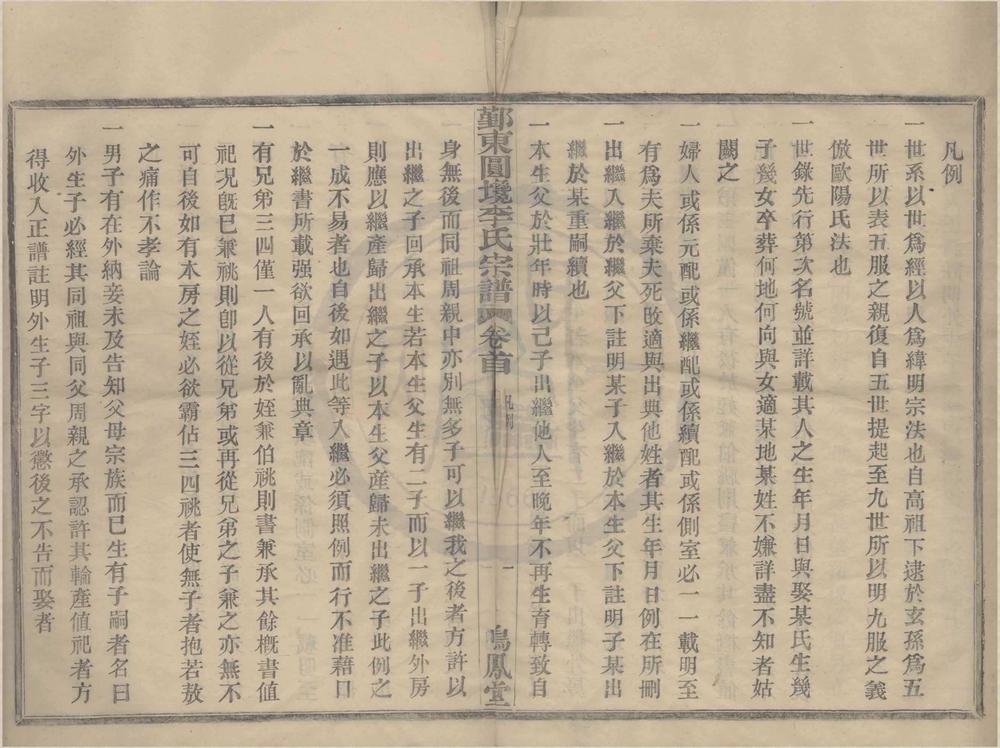 凡例
一世系以世爲經以人爲緯明宗法也自高祖下逮於玄孫爲五
世所以表五服之親復自五世提起至九世所以明九服之義
倣歐陽氏法也
一世錄先行第次名號並詳載其人之生年月日與娶某氏生幾
子幾女卒葬何地何向與女適某地某姓不嫌詳盡不知者姑
闕之
一婦人或係元配或係繼配或係續配或係側室必一一載明至
有爲夫所棄夫死改適與出典他姓者其生年月日例在所刪
一出繼入繼於繼父下註明某子入繼於本生父下註明子某出
繼於某重嗣續也
一本生父於壯年時以己子出繼他人至晚年不再生育轉致自
鄞東圓墝李氏宗譜
卷首
凡例
一
鳴鳳堂
身無後而同祖周親中亦別無多子可以繼我之後者方許以
出繼之子回承本生若本生父生有二子而以一子出繼外房
則應以繼產歸出繼之子以本生父產歸未出繼之子此例之
一成不易者也自後如遇此等入繼必須照例而行不准藉口
於繼書所載强欲回承以亂典章
一有兄弟三四僅一人有後於姪兼伯祧則書兼承其餘概書值
祀況旣巳兼祧則卽以從兄弟或再從兄弟之子兼之亦無不
可自後如有本房之姪必欲霸佔三四祧者使無子者抱若敖
之痛作不孝論
一男子有在外納妾未及告知父母宗族而巳生有子嗣者名曰
外生子必經其同祖與同父周親之承認許其輪產值祀者方
得收入正譜註明外生子三字以懲後之不告而娶者